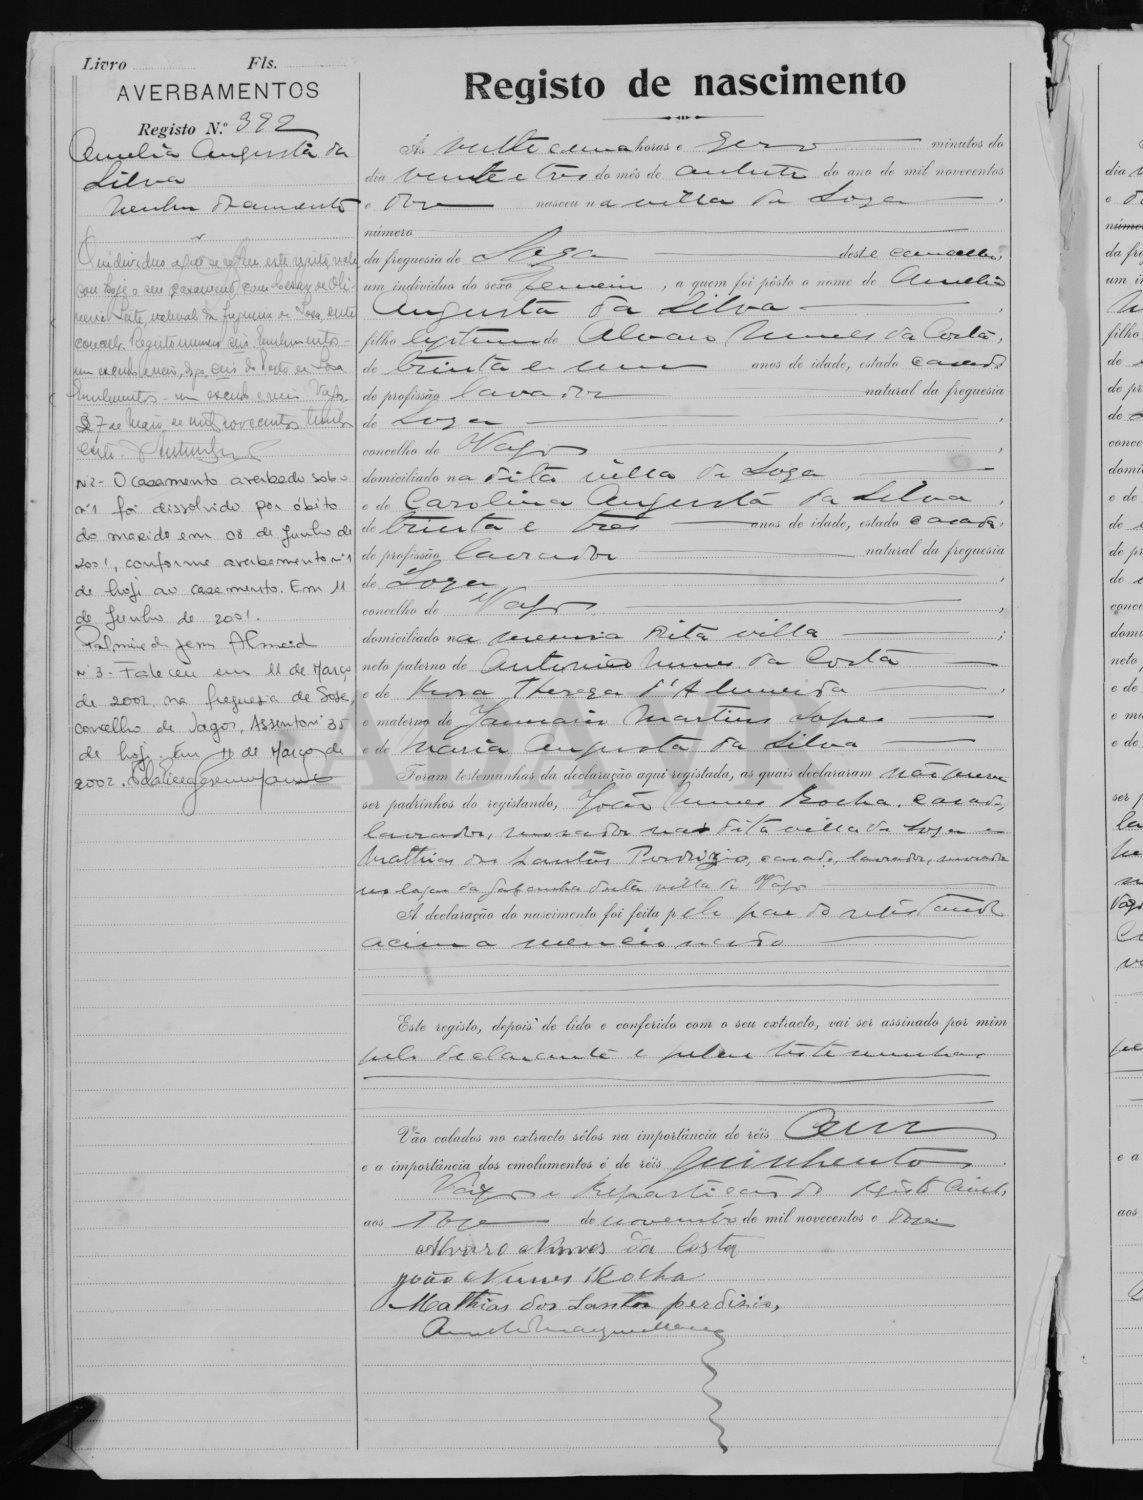 Livro Fls.
AVERBAMENTOS
Registo N.º 392
Amelia Augusta da
Silva
Nenhum documento
O individuo a que se refere este registo
seu casamento com Cesar de Oli-
natural da freguesia de Sosa, este
concelho
de Sosa
Emolumentos - um escudo e meio. Vagos
27 de Maio de mil novecentos trinta
N.º 2 - O casamento averbado sob o
n.º 1 foi dissolvido por óbito
do marido em 08 de Junho de
2001, conforme averbamento nº 1
de hoje ao casamento. Em 11
de Junho de 2001.
N.º 3 - Faleceu em 11 de Março
de 2002, na freguesia de Sosa,
concelho de Vagos. Assento nº 35
de hoje. Em 11 de Março de
2002.
Registo de nascimento
Ás vinte e uma horas e zero minutos do
dia vinte e tres do mês de outubro do ano de mil novecentos
e doze nasceu na villa da Soza,
número
da freguesia de Soza deste concelho,
um indivíduo do sexo femenin, a quem foi pôsto o nome de Amelia
Augusta da Silva
filho legitimo de Alvaro Nunes da Costa,
de trinta e um anos de idade, estado casado
de profissão lavrador natural da freguesia
de Soza,
concelho de Vagos,
domiciliado na dita villa da Soza
e de Carolina Augusta da Silva,
de trinta e tres anos de idade, estado casada,
de profissão lavradora natural da freguesia
de Soza,
concelho de Vagos,
domiciliado na mesma dita villa;
neto paterno de Antonio Nunes da Costa
e de Rosa Thereza d'Almeida,
e materno de Januario Martins Lopes
e de Maria Augusta da Silva
Foram testemunhas da declaração aqui registada, as quais declararam não querer
ser padrinhos do registando, João Nunes Rocha, casado,
lavrador, morador na dita villa da Soza e
Mathias dos Santos Perdizio, casado, lavrador, morador
no logar da desta villa de Vagos
A declaração do nascimento foi feita pelo pae do registando
acima mencionado
Este registo, depois de lido e conferido com o seu extracto, vai ser assinado por mim
pelo declarante e pelas testemunhas
Vão colados no extracto sêlos na importância de réis Cem
e a importância dos emolumentos é de réis quinhentos.
Vagos e Repartição do Registo Civil,
aos doze de novembro de mil novecentos e doze.
Alvaro Nunes da Costa
João Nunes Rocha
Mathias dos Santos perdizio,
ADAVR